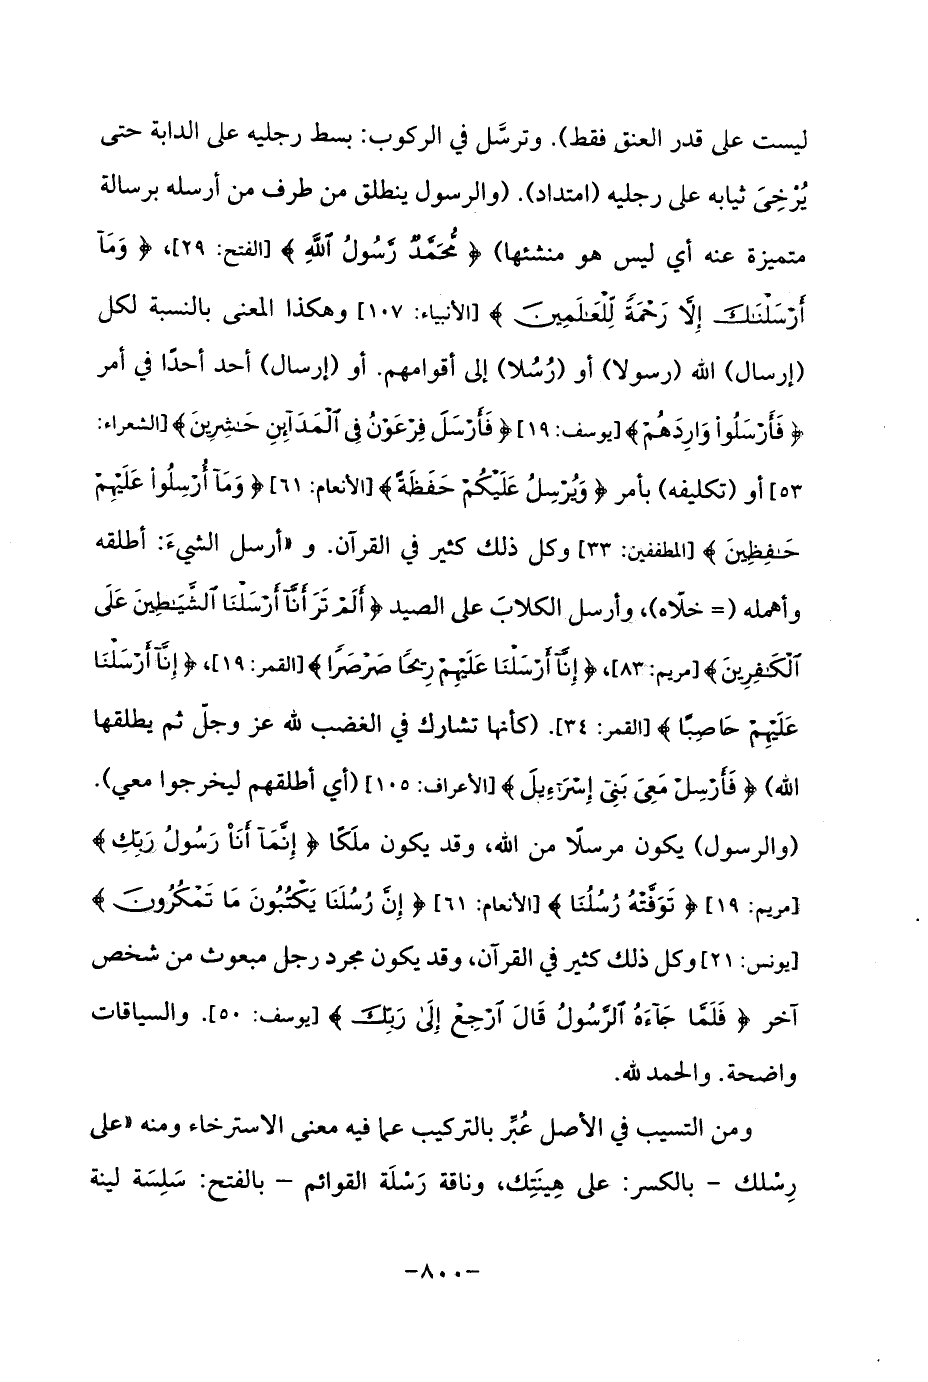 ليست على قدر العنق فقط). وترسَّل في الركوب: بسط رجليه على الدابة حتى
يُرْخِىَ ثيابه على رجليه (امتداد). (والرسول ينطلق من طرف من أرسله برسالة
متميزة عنه أي ليس هو منشئها) ﴿ مُّحَمَّدٌ رَّسُولُ ٱللَّهِ ﴾ [الفتح: ٢٩]، ﴿ وَمَآ
أَرْسَلْنَٰكَ إِلَّا رَحْمَةً لِّلْعَٰلَمِينَ ﴾ [الأنبياء: ١٠٧] وهكذا المعنى بالنسبة لكل
(إرسال) الله (رسولا) أو (رُسُلا) إلى أقوامهم. أو (إرسال) أحد أحدًا في أمر
﴿ فَأَرْسَلُوا۟ وَارِدَهُمْ ﴾ [يوسف: ١٩] ﴿ فَأَرْسَلَ فِرْعَوْنُ فِى ٱلْمَدَآئِنِ حَٰشِرِينَ ﴾ [الشعراء:
٥٣] أو (تكليفه) بأمر ﴿ وَيُرْسِلُ عَلَيْكُمْ حَفَظَةً ﴾ [الأنعام: ٦١] ﴿ وَمَآ أُرْسِلُوا۟ عَلَيْهِمْ
حَٰفِظِينَ ﴾ [المطففين: ٣٣] وكل ذلك كثير في القرآن. و «أرسل الشيءَ: أطلقه
وأهمله (= خلّاه)، وأرسل الكلابَ على الصيد ﴿ أَلَمْ تَرَ أَنَّآ أَرْسَلْنَا ٱلشَّيَٰطِينَ عَلَى
ٱلْكَٰفِرِينَ ﴾ [مريم: ٨٣]، ﴿ إِنَّآ أَرْسَلْنَا عَلَيْهِمْ رِيحًا صَرْصَرًا ﴾ [القمر: ١٩]، ﴿ إِنَّآ أَرْسَلْنَا
عَلَيْهِمْ حَاصِبًا ﴾ [القمر: ٣٤]. (كأنها تشارك في الغضب لله عز وجلّ ثم يطلقها
الله) ﴿ فَأَرْسِلْ مَعِىَ بَنِىٓ إِسْرَٰٓءِيلَ ﴾ [الأعراف: ١٠٥] (أي أطلقهم ليخرجوا معي).
(والرسول) يكون مرسلًا من الله، وقد يكون ملَكًا ﴿ إِنَّمَآ أَنَا۠ رَسُولُ رَبِّكِ ﴾
[مريم: ١٩] ﴿ تَوَفَّتْهُ رُسُلُنَا ﴾ [الأنعام: ٦١] ﴿ إِنَّ رُسُلَنَا يَكْتُبُونَ مَا تَمْكُرُونَ ﴾
[يونس: ٢١] وكل ذلك كثير في القرآن، وقد يكون مجرد رجل مبعوث من شخص
آخر ﴿ فَلَمَّا جَآءَهُ ٱلرَّسُولُ قَالَ ٱرْجِعْ إِلَىٰ رَبِّكَ ﴾ [يوسف: ٥٠]. والسياقات
واضحة. والحمد لله.
ومن التسيب في الأصل عُبِّر بالتركيب عما فيه معنى الاسترخاء ومنه «على
رِسْلك – بالكسر: على هِينَتِك، وناقة رَسْلَة القوائم – بالفتح: سَلِسَة لينة
–٨٠٠–